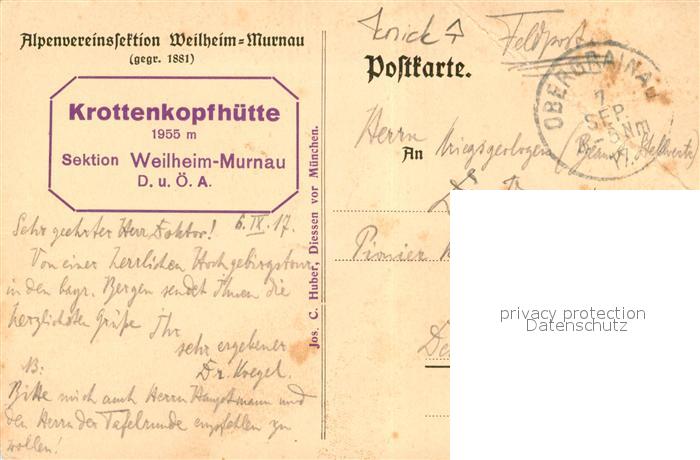 Alpenvereinssektion Weilheim=Murnau
(gegr. 1881)
Krottenkopfhütte
1955 m
Sektion Weilheim-Murnau
D. u. Ö. A.
Sehr geehrter Herr Doktor! 6.IX.17.
Von einer herrlichen Hochgebirgstour
in den bayr. Bergen sendet Ihnen die
herzlichsten Grüße Ihr
sehr ergebener
Dr. Kregel.
NB:
Bitte mich auch Herrn Hauptmann und
den Herrn der Tafelrunde empfehlen zu
wollen!
Jos. C. Huber, Diessen vor München.
Feldpost
Postkarte.
OBERGRAINAU
7
SEP.
17
Herrn
An Kriegsgeologen
Pionier
privacy protection
Datenschutz